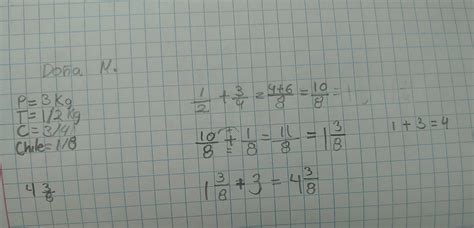 Doña N.
P= 3 Kg
T= 1/2 Kg
C= 3/4
Chile= 1/8
4 3/8
1/2 + 3/4 = 4+6/8 = 10/8
10/8 + 1/8 = 11/8 = 1 3/8
1 + 3 = 4
1 3/8 + 3 = 4 3/8